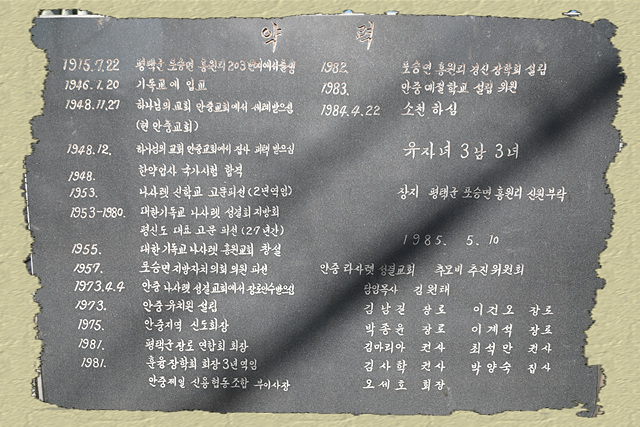 약 력
1915.7.22 평택군 포승면 홍원리 203번지에서 출생
1946.7.20 기독교에 입교
1948.11.27 하나님의 교회 안중교회에서 세례받으심
(현 안중교회)
1948.12. 하나님의 교회 안중교회에서 집사 피택 받으심
1948. 한약업사 국가시험 합격
1953. 나사렛 신학교 고문피선 (2년역임)
1953-1980. 대한기독교 나사렛 성결회 지방회
평신도 대표 고문 피선 (27년간)
1955. 대한기독교 나사렛 홍원교회 창설
1957. 포승면 지방자치의회 의원 피선
1973.4.4 안중 나사렛 성결교회에서 장로안수받으심
1973. 안중 유치원 설립
1975. 안중지역 신도회장
1981. 평택군 장로 연합회 회장
1981. 훈융장학회 회장 3년 역임
안중제일 신용협동조합 부이사장
1982. 포승면 홍원리 경신 장학회 설립
1983. 안중예절학교 설립 위원
1984.4.22 소천 하심
유자녀 3남 3녀
장지 평택군 포승면 홍원리 신원부락
1985. 5. 10
안중 나사렛 성결교회 추모비 추진위원회
담임목사 김원태
김남길 장로 이건오 장로
박종윤 장로 이계석 장로
김마리아 권사 최석만 권사
김사학 권사 박양숙 집사
오세호 회장